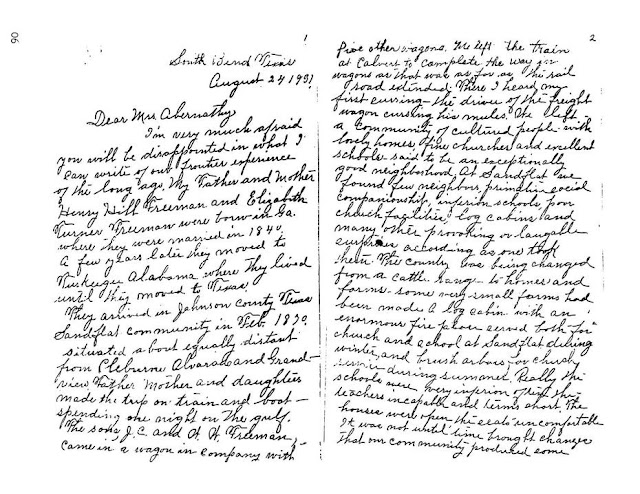 96
1
South Bend Texas
August 24 1931
Dear Mrs Abernathy
I'm very much afraid
you will be disappointed in what I
can write of our frontier experience
of the long ago. My Father and Mother
Henry Hill Freeman and Elizabeth
Turner Freeman were born in Ga.
where they were married in 1840.
A few years later they moved to
Tuskegee Alabama where they lived
until they moved to Texas.
They arrived in Johnson County Texas
Sandflat community in Feb. 1870
situated about equally distant
from Cleburne Alvarado and Grand-
view Father Mother and daughters
made the trip on train and boat -
spending one night on the gulf.
The sons J.C. and H. H. Freeman
came in a wagon in company with
2
five other wagons. We left the train
at Calvert to complete the way in
wagons as that was as far as the rail
road extended. There I heard my
first cursing - the driver of the freight
wagon cursing his mules. We left
a community of cultured people with
lovely homes, fine churches and excellent
schools said to be an exceptionally
good neighborhood. At Sandflat we
found few neighbors, primitive social
companionship, inferior schools poor
church facilities, log cabins and
many other provoking or laughable
surprises according as one took
them. The country was being changed
from a cattle range to homes and
farms - some very small farms had
been made A log cabin with an
enormous fire place served both for
church and school at Sandflat during
winter, and brush arbors for church
service during summer. Really the
schools were very inferior often the
teachers incapable and terms short. The
houses were open the seats uncomfortable
It was not until time brought changes
that our community produced some